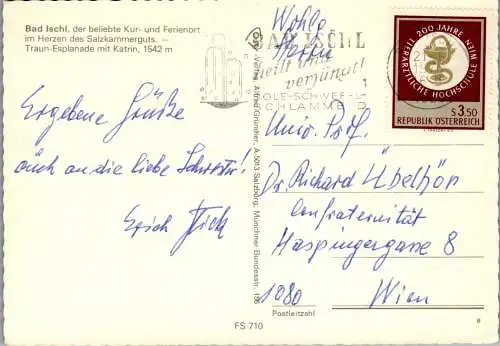 Bad Ischl, der beliebte Kur- und Ferienort
im Herzen des Salzkammerguts. –
Traun-Esplanade mit Katrin, 1542 m
Ergebene Grüße
auch an die liebe Schwester!
Erich
FS 710
Verlag Alfred Gründler, A 5013 Salzburg, Münchner Bundesstr. 156
BAD ISCHL
heilt und
verjüngt!
SOLE-SCHWEFEL-
SCHLAMMBAD
200 JAHRE
TIERÄRZTLICHE HOCHSCHULE WIEN
S 3.50
REPUBLIK ÖSTERREICH
Wohlg.
Herrn
Univ. Prof.
Dr. Richard Übelhör
Confraternität
Haspingergasse 8
1080 Wien
Postleitzahl
8